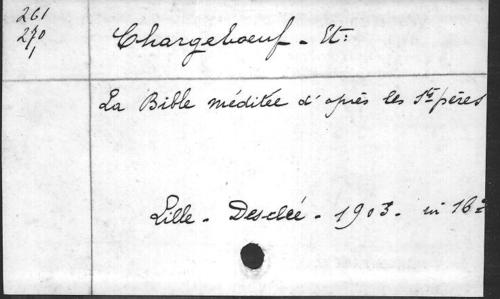 261
270
1
Chargeboeuf - Et:
La Bible méditée d'après les Sts pères
Lille - Desclée - 1903 - in 16º